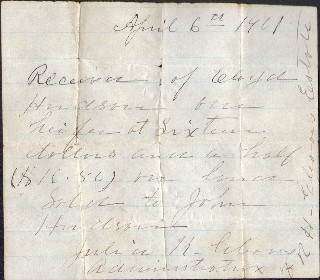 April 6th 1901
Received of Cloyd
Anderson one
heifer at Sixteen
dollars and a half
($16.50) one
sold to John
Anderson
Julia H.
administratrix
Estate